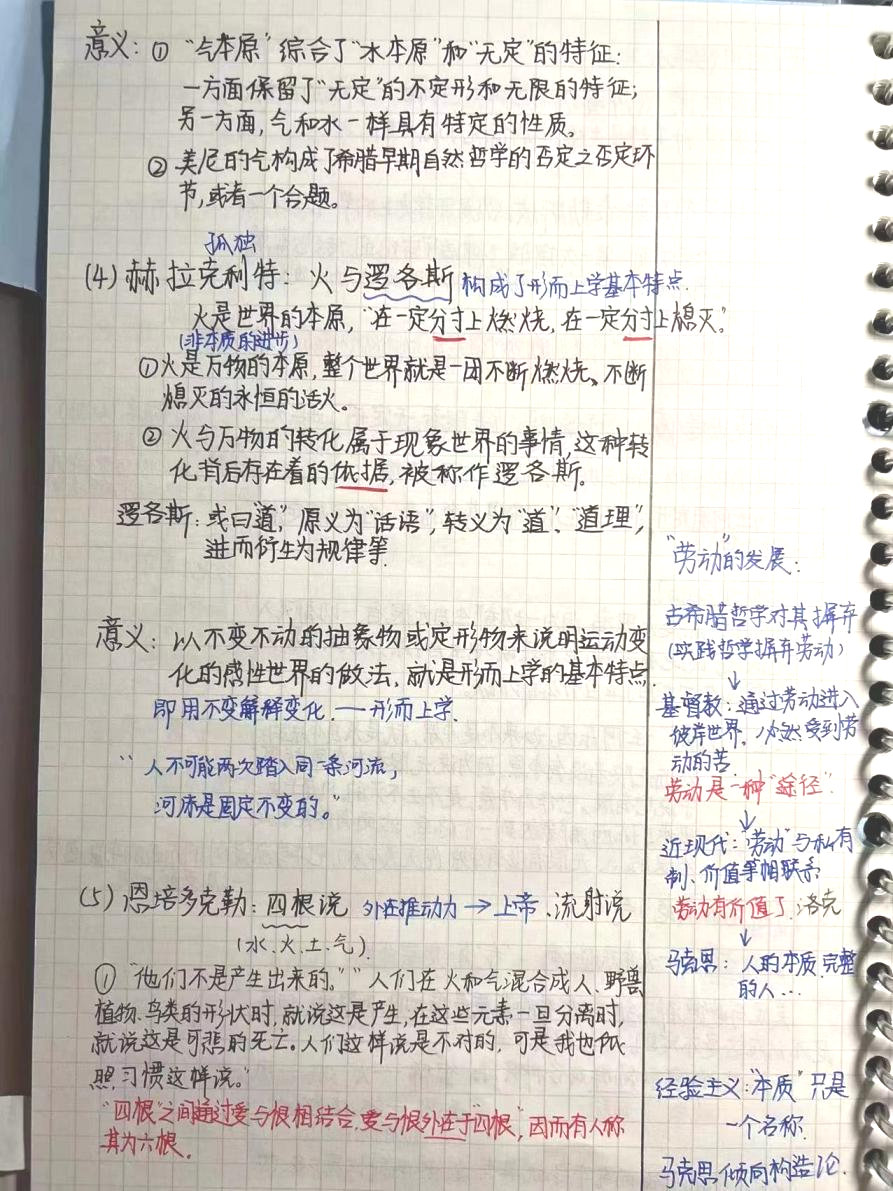 意义：① “气本原”综合了“水本原”和“无定”的特征：
一方面保留了“无定”的不定形和无限的特征；
另一方面，气和水一样具有特定的性质。
② 美尼的气构成了希腊早期自然哲学的否定之否定环
节，或者一个合题。
孤独
(4) 赫拉克利特：火与逻各斯 构成了形而上学基本特点.
火是世界的本原，“在一定分寸上燃烧，在一定分寸上熄灭”.
(非本质的进步)
①火是万物的本原，整个世界就是一团不断燃烧、不断
熄灭的永恒的活火。
② 火与万物的转化属于现象世界的事情，这种转
化背后存在着的依据，被称作逻各斯。
逻各斯：或曰“道”，原义为“话语”，转义为“道”、“道理”，
进而衍生为规律等.
意义：以不变不动的抽象物或定形物来说明运动变
化的感性世界的做法，就是形而上学的基本特点.
即用不变解释变化.——形而上学.
“人不可能两次踏入同一条河流，
河床是固定不变的。”
(5) 恩培多克勒：四根说 外在推动力→上帝、流射说
(水、火、土、气).
①“他们不是产生出来的。”“人们在火和气混合成人、野兽
植物、鸟类的形状时，就说这是产生，在这些元素一旦分离时，
就说这是可悲的死亡。人们这样说是不对的，可是我也依
照习惯这样说。”
“四根”之间通过爱与恨相结合，爱与恨外在于“四根”，因而有人称
其为六根.
“劳动”的发展：
古希腊哲学对其摒弃
(实践哲学摒弃劳动)
↓
基督教：通过劳动进入
彼岸世界，必然受到劳
动的苦
劳动是一种“途径”.
↓
近现代：“劳动”与私有
制、价值等相联系
劳动有价值了.洛克
↓
马克思：人的本质.完整
的人...
经验主义：“本质”只是
一个名称.
马克思倾向构造论.